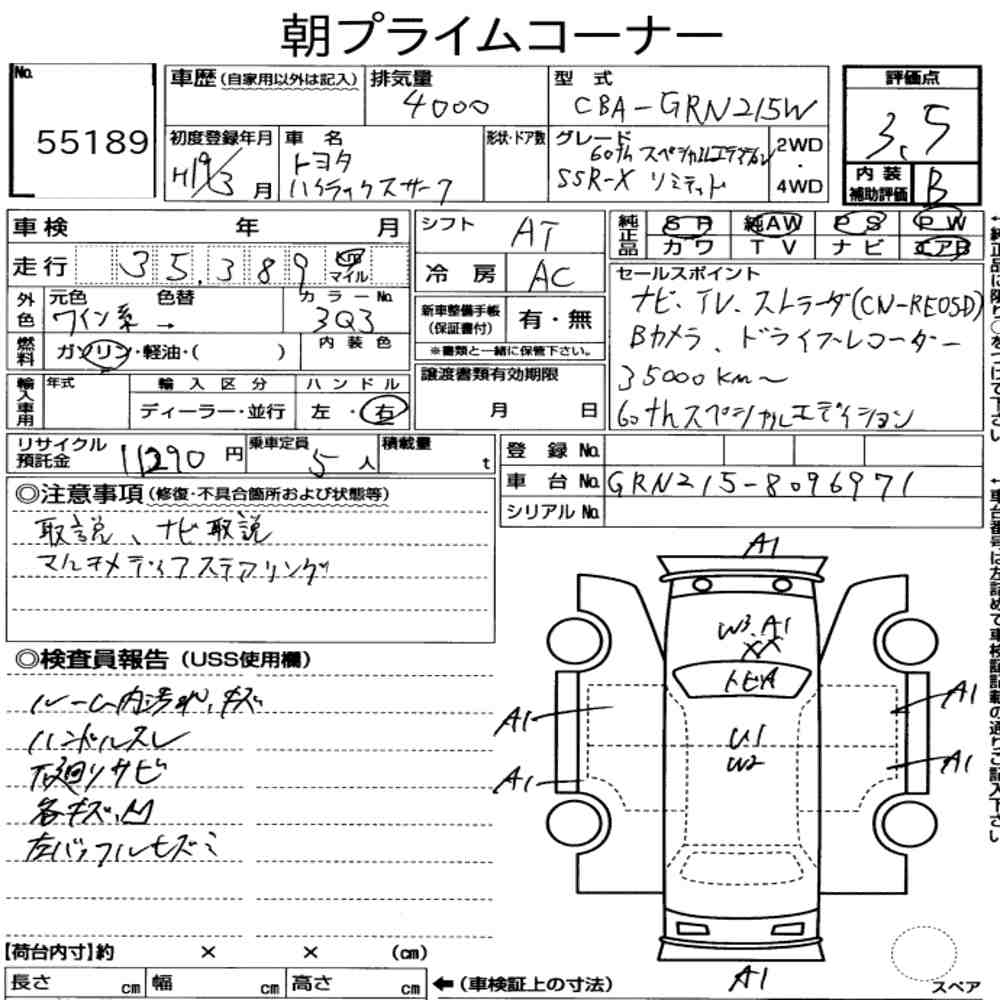 朝プライムコーナー
No. 55189
車歴(自家用以外は記入)
排気量 4000
型式 CBA-GRN215W
評価点 3.5
初度登録年月 H19/3月
車名 トヨタ ハイラックスサーフ
形状・ドア数
グレード 60thスペシャルエディション
SSR-X リミテッド
2WD・4WD
内装補助評価 B
車検 年 月
シフト AT
純正品 SR 純AW PS PW
カワ TV ナビ エアB
走行 35,389 km マイル
冷房 AC
セールスポイント
ナビ、TV、ストラーダ(CN-RE05D)
Bカメラ、ドライブレコーダー
35000km〜
60thスペシャルエディション
外色 元色 ワイン系 色替 →
カラーNo. 3Q3
新車整備手帳(保証書付) 有・無
※書類と一緒に保管下さい。
燃料 ガソリン・軽油・( )
内装色
譲渡書類有効期限
月 日
輸入車用 年式 輸入区分 ハンドル
ディーラー・並行 左・右
リサイクル預託金 11290円
乗車定員 5人
積載量 t
登録No.
車台No. GRN215-8096971
シリアルNo.
◎注意事項(修復・不具合箇所および状態等)
取説、ナビ取説
マルチメディアステアリング
◎検査員報告(USS使用欄)
ルーム内汚れ、キズ
ハンドルスレ
下廻りサビ
各キズ、凹
A1
W3.A1
XX
トビA
U1
W2
A1
A1
A1
A1
A1
【荷台内寸】約 × × (cm)
長さ cm 幅 cm 高さ cm
←(車検証上の寸法)
スペア